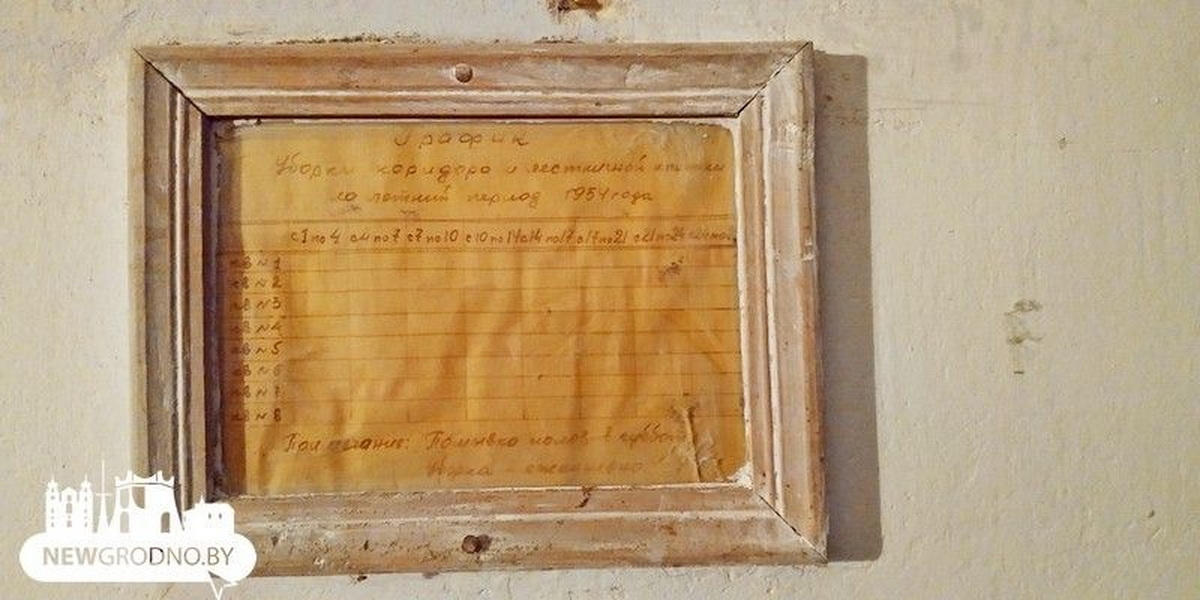 График
Уборки коридора и лестничной клетки
на летний период 1954 года
с 1 по 4 с 4 по 7 с 7 по 10 с 10 по 14 с 14 по 17 с 17 по 21 с 21 по 24
кв № 1
кв № 2
кв № 3
кв № 4
кв № 5
кв № 6
кв № 7
кв № 8
Примечание: Помывка полов в субботу
ежедневно
NEWGRODNO.BY